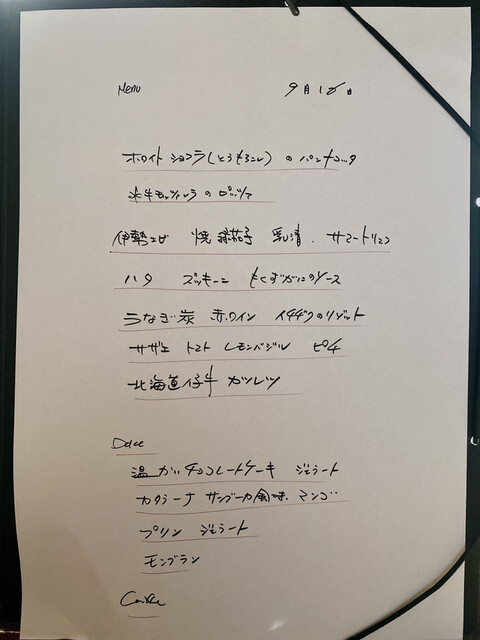 Menu 9月16日
ホワイトショコラ(とうもろこし)のパンナコッタ
水牛モッツァレラのピッツァ
伊勢エビ 焼 茄子 乳清 サマートリュフ
ハタ ズッキーニ もくずがにのソース
うなぎ炭 赤ワイン イチヂクのリゾット
サザエ トマト レモンバジル ピチ
北海道仔牛 カツレツ
Dolce
温かいチョコレートケーキ ジェラート
カタラーナ サンブーカ風味 マンゴー
プリン ジェラート
モンブラン